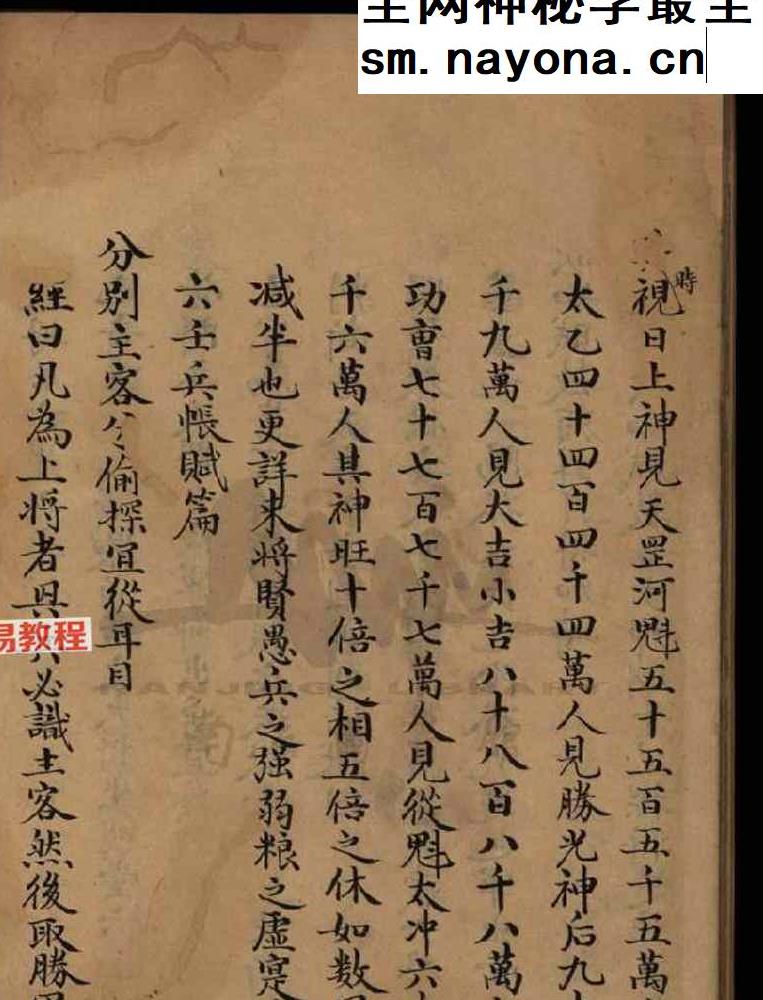 sm.nayona.cn
時
視日上神見天罡河魁五十五百五千五萬
太乙四十四百四千四萬人見勝光神后九十
千九萬人見大吉小吉八十八百八千八萬
功曹七十七百七千七萬人見從魁太冲六
千六萬人其神旺十倍之相五倍之休如数
减半也更詳来將賢愚兵之强弱粮之虛寔
六壬兵帳賦篇
分別主客兮偷探宜從耳目
經曰凡為上將者必識主客然後取勝
易教程